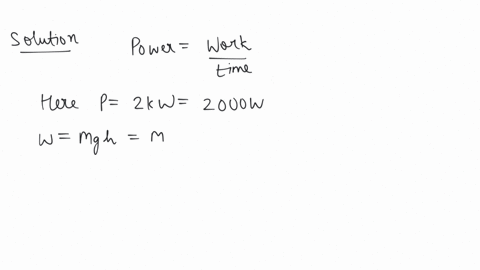 Solution
Power = Work / time
Here P = 2kW = 2000W
W = mgh = M